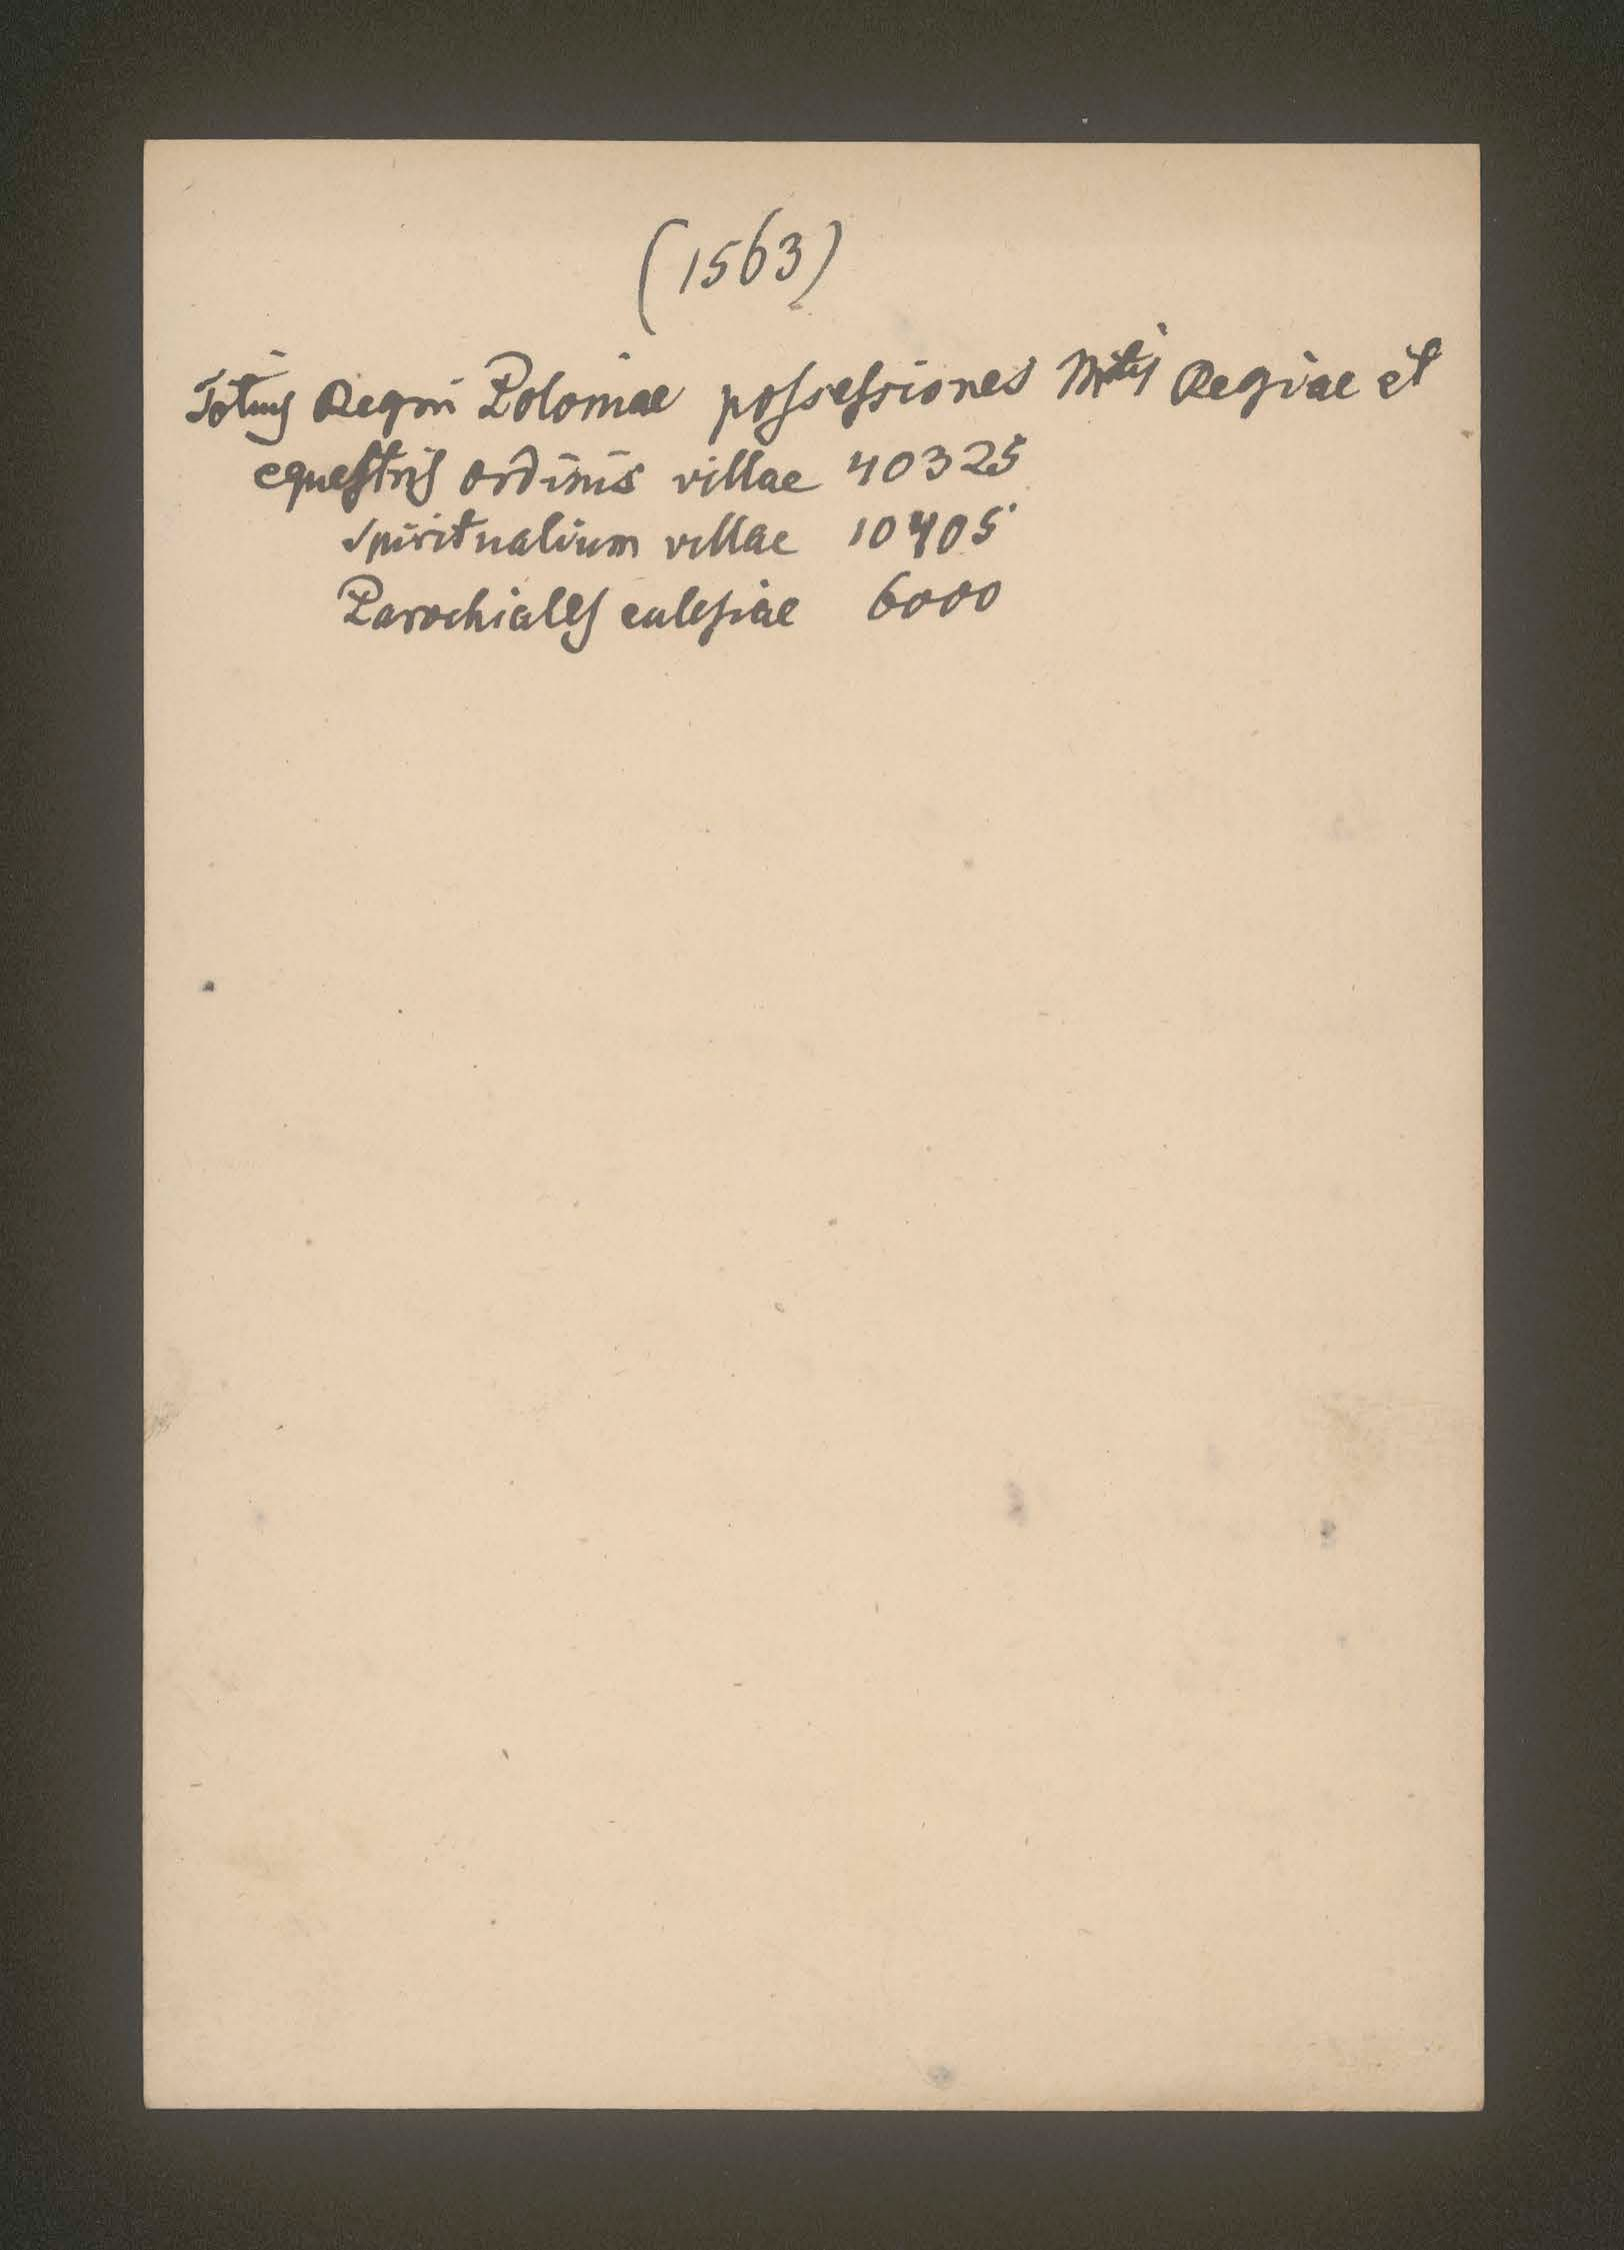 (1563)
Totius Regni Poloniae possessiones Mtis Regiae et
equestris ordinis villae 40325
Spiritualium villae 10405
Parochiales eclesiae 6000